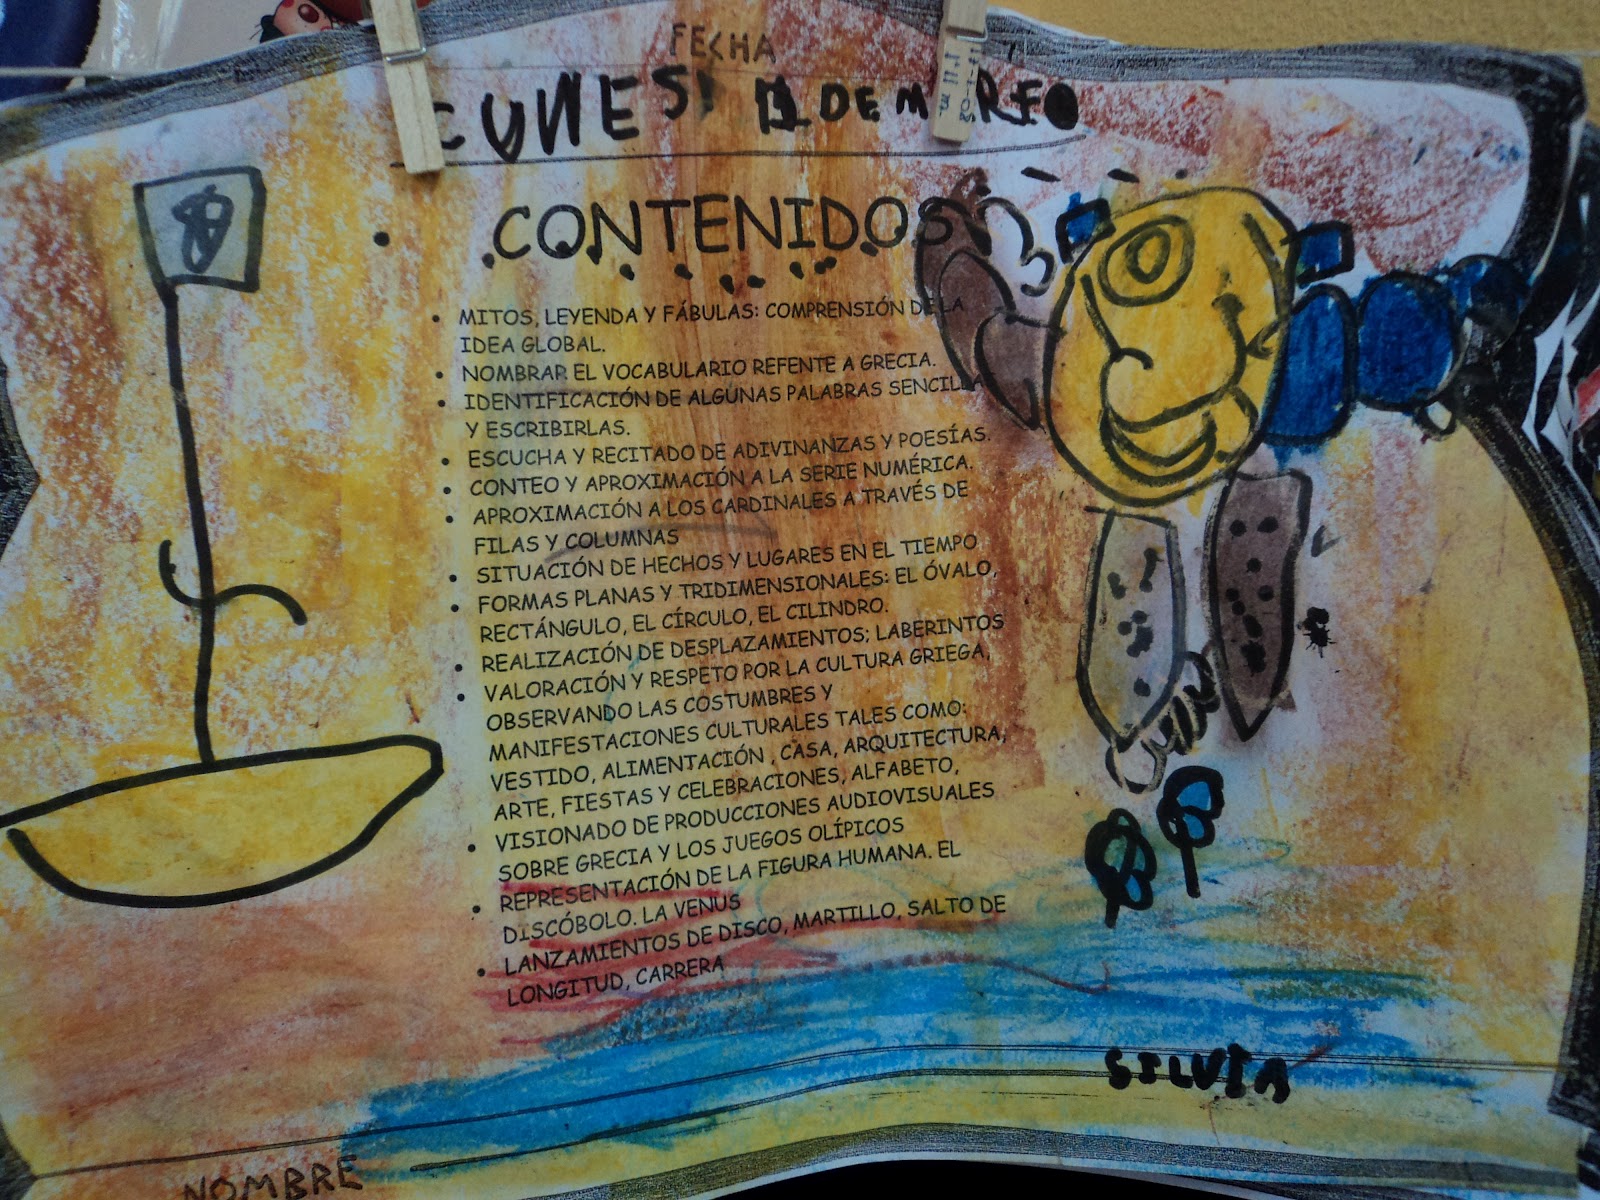 FECHA
DE
CONTENIDOS
• MITOS, LEYENDA Y FÁBULAS: COMPRENSIÓN DE LA
IDEA GLOBAL.
• NOMBRAR EL VOCABULARIO REFENTE A GRECIA.
• IDENTIFICACIÓN DE ALGUNAS PALABRAS SENCILLA
Y ESCRIBIRLAS.
• ESCUCHA Y RECITADO DE ADIVINANZAS Y POESÍAS.
• CONTEO Y APROXIMACIÓN A LA SERIE NUMÉRICA.
• APROXIMACIÓN A LOS CARDINALES A TRAVÉS DE
FILAS Y COLUMNAS
• SITUACIÓN DE HECHOS Y LUGARES EN EL TIEMPO
• FORMAS PLANAS Y TRIDIMENSIONALES: EL ÓVALO,
RECTÁNGULO, EL CÍRCULO, EL CILINDRO.
• REALIZACIÓN DE DESPLAZAMIENTOS; LABERINTOS
• VALORACIÓN Y RESPETO POR LA CULTURA GRIEGA,
OBSERVANDO LAS COSTUMBRES Y
MANIFESTACIONES CULTURALES TALES COMO:
VESTIDO, ALIMENTACIÓN , CASA, ARQUITECTURA,
ARTE, FIESTAS Y CELEBRACIONES, ALFABETO,
• VISIONADO DE PRODUCCIONES AUDIOVISUALES
SOBRE GRECIA Y LOS JUEGOS OLÍPICOS
• REPRESENTACIÓN DE LA FIGURA HUMANA. EL
DISCÓBOLO. LA VENUS
• LANZAMIENTOS DE DISCO, MARTILLO, SALTO DE
LONGITUD, CARRERA
SILVIA
NOMBRE